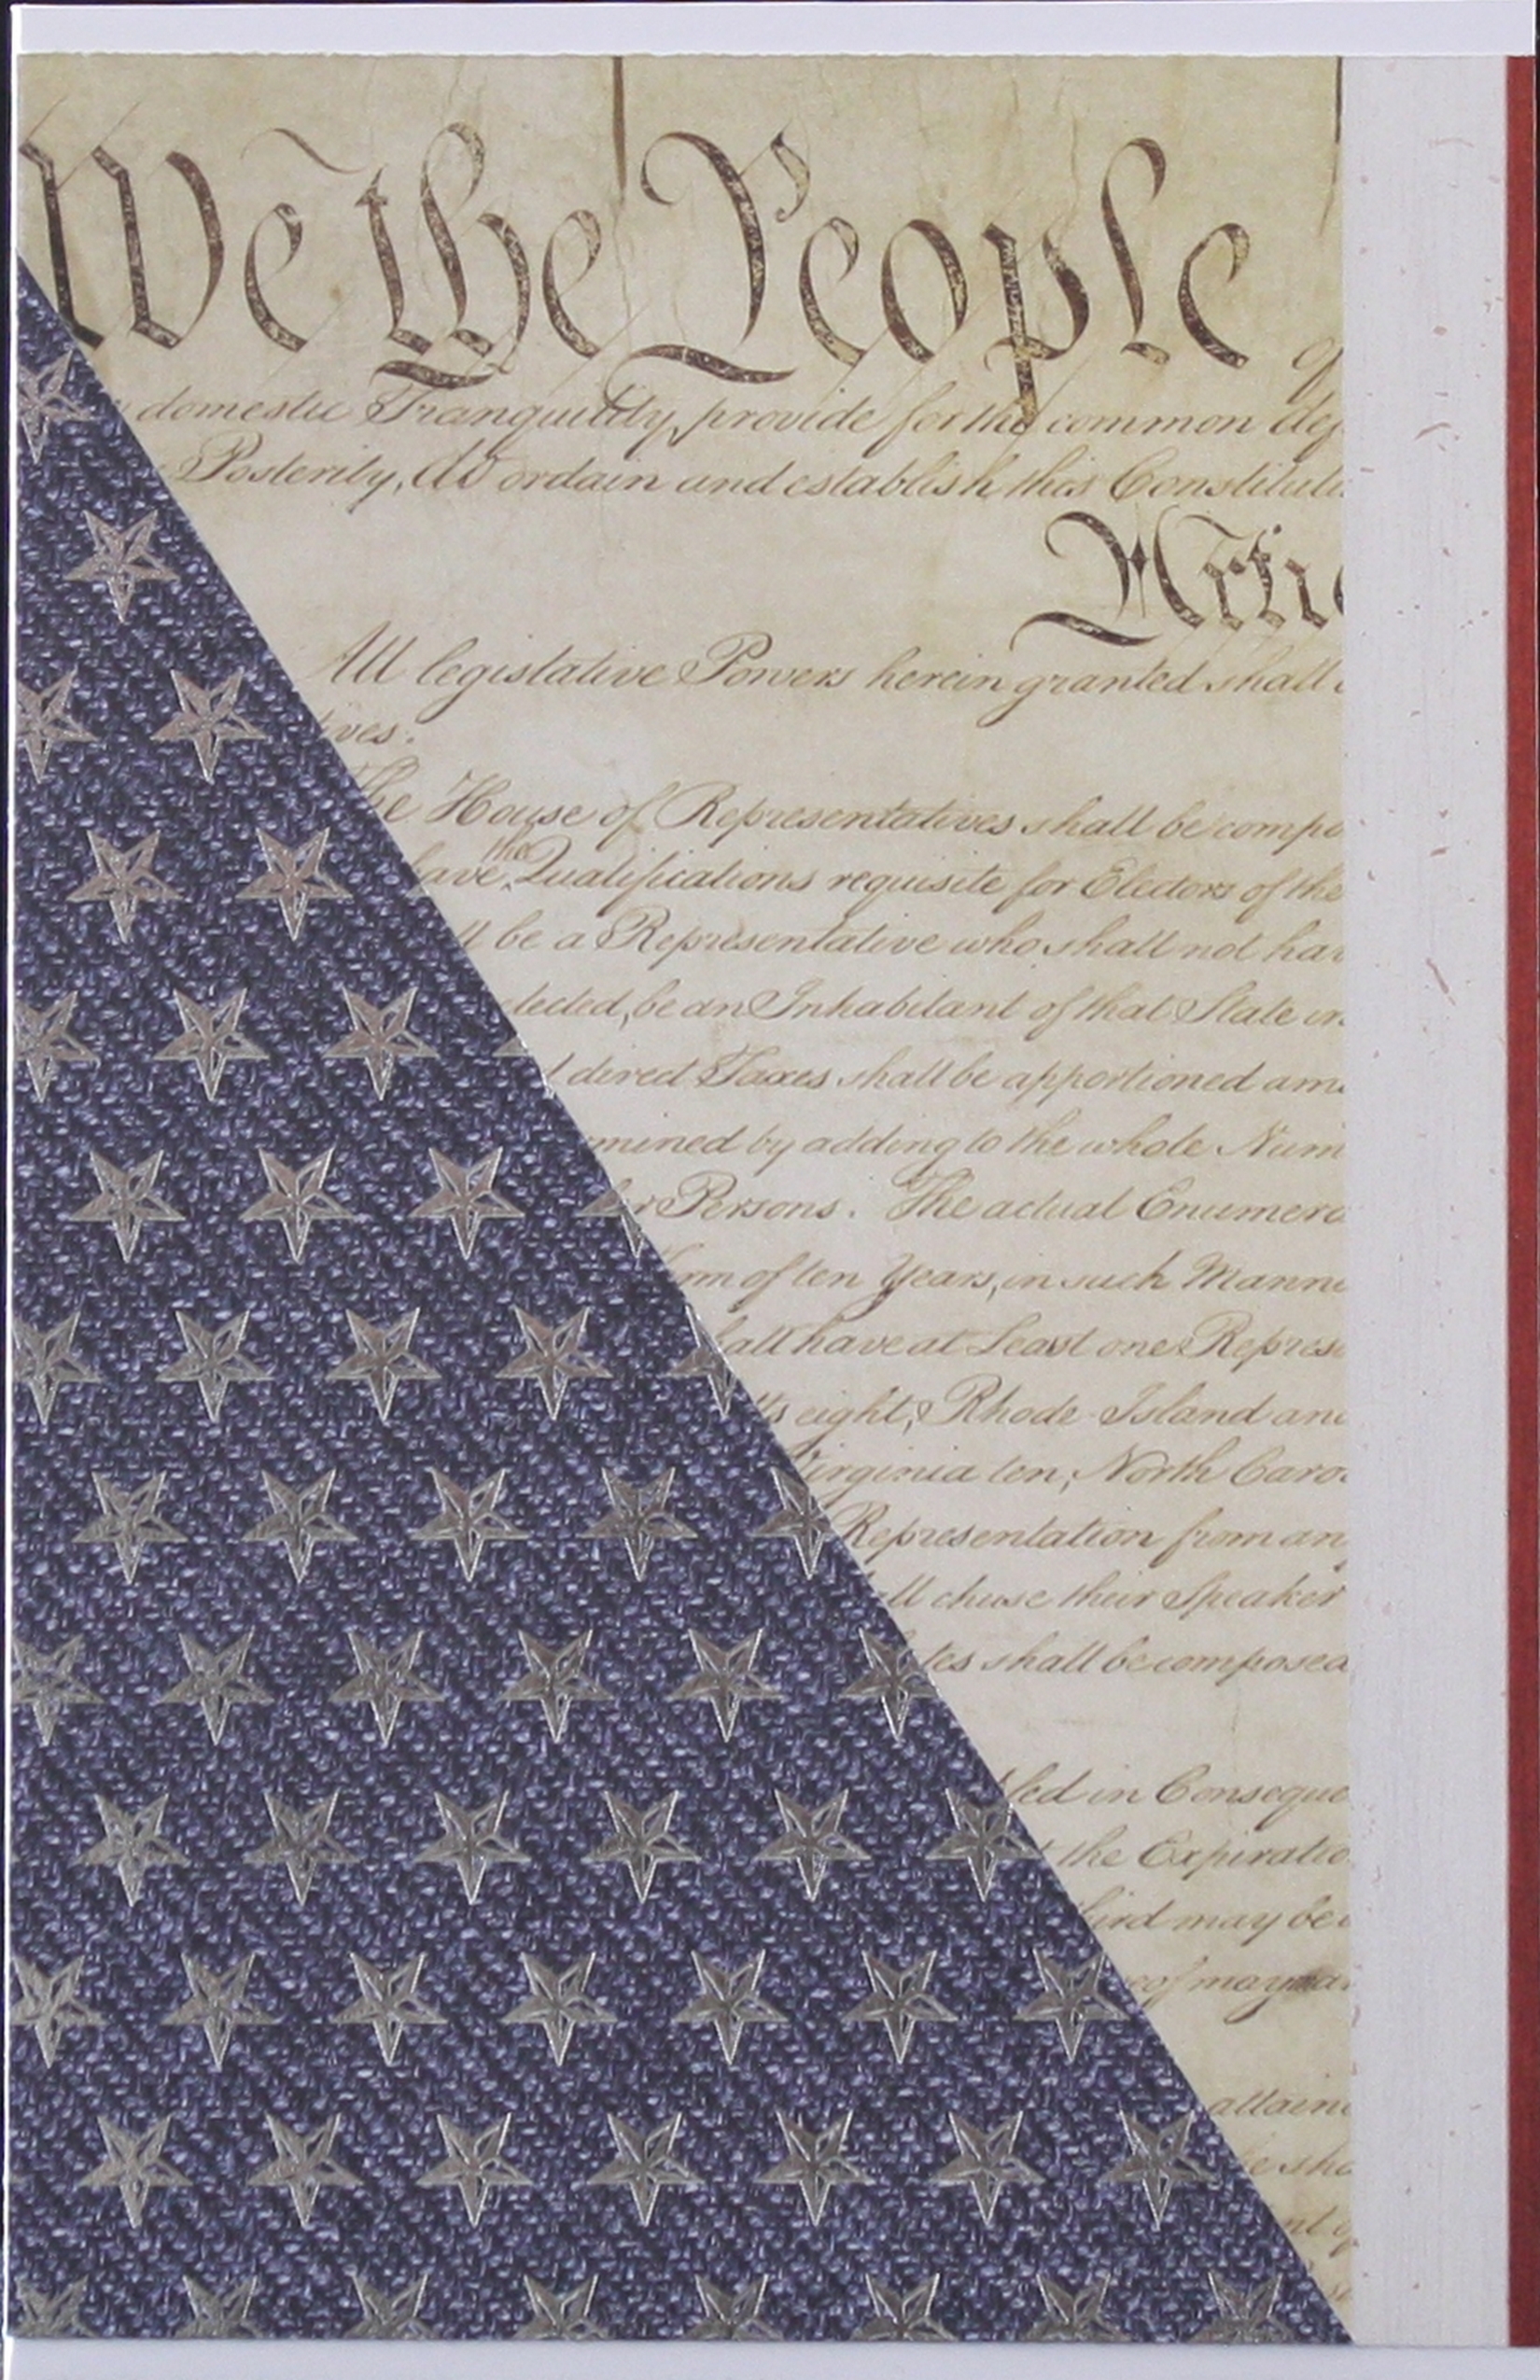 We the People of
domestic Tranquility, provide for the common def
Posterity, do ordain and establish this Constituti
Artic
All legislative Powers herein granted shall
ves.
The House of Representatives shall be compo
have the Qualifications requisite for Electors of the
ll be a Representative who shall not hav
elected, be an Inhabitant of that State in
direct Taxes shall be apportioned amo
mined by adding to the whole Num
er Persons. The actual Enumera
rm of ten Years, in such Manne
hall have at Least one Represe
tts eight, Rhode Island and
Virginia ten, North Caro
Representation from an
all chuse their Speaker
tes shall be composed
led in Conseque
the Expiratio
hird may be
eof may
attaine
e sha
nt of